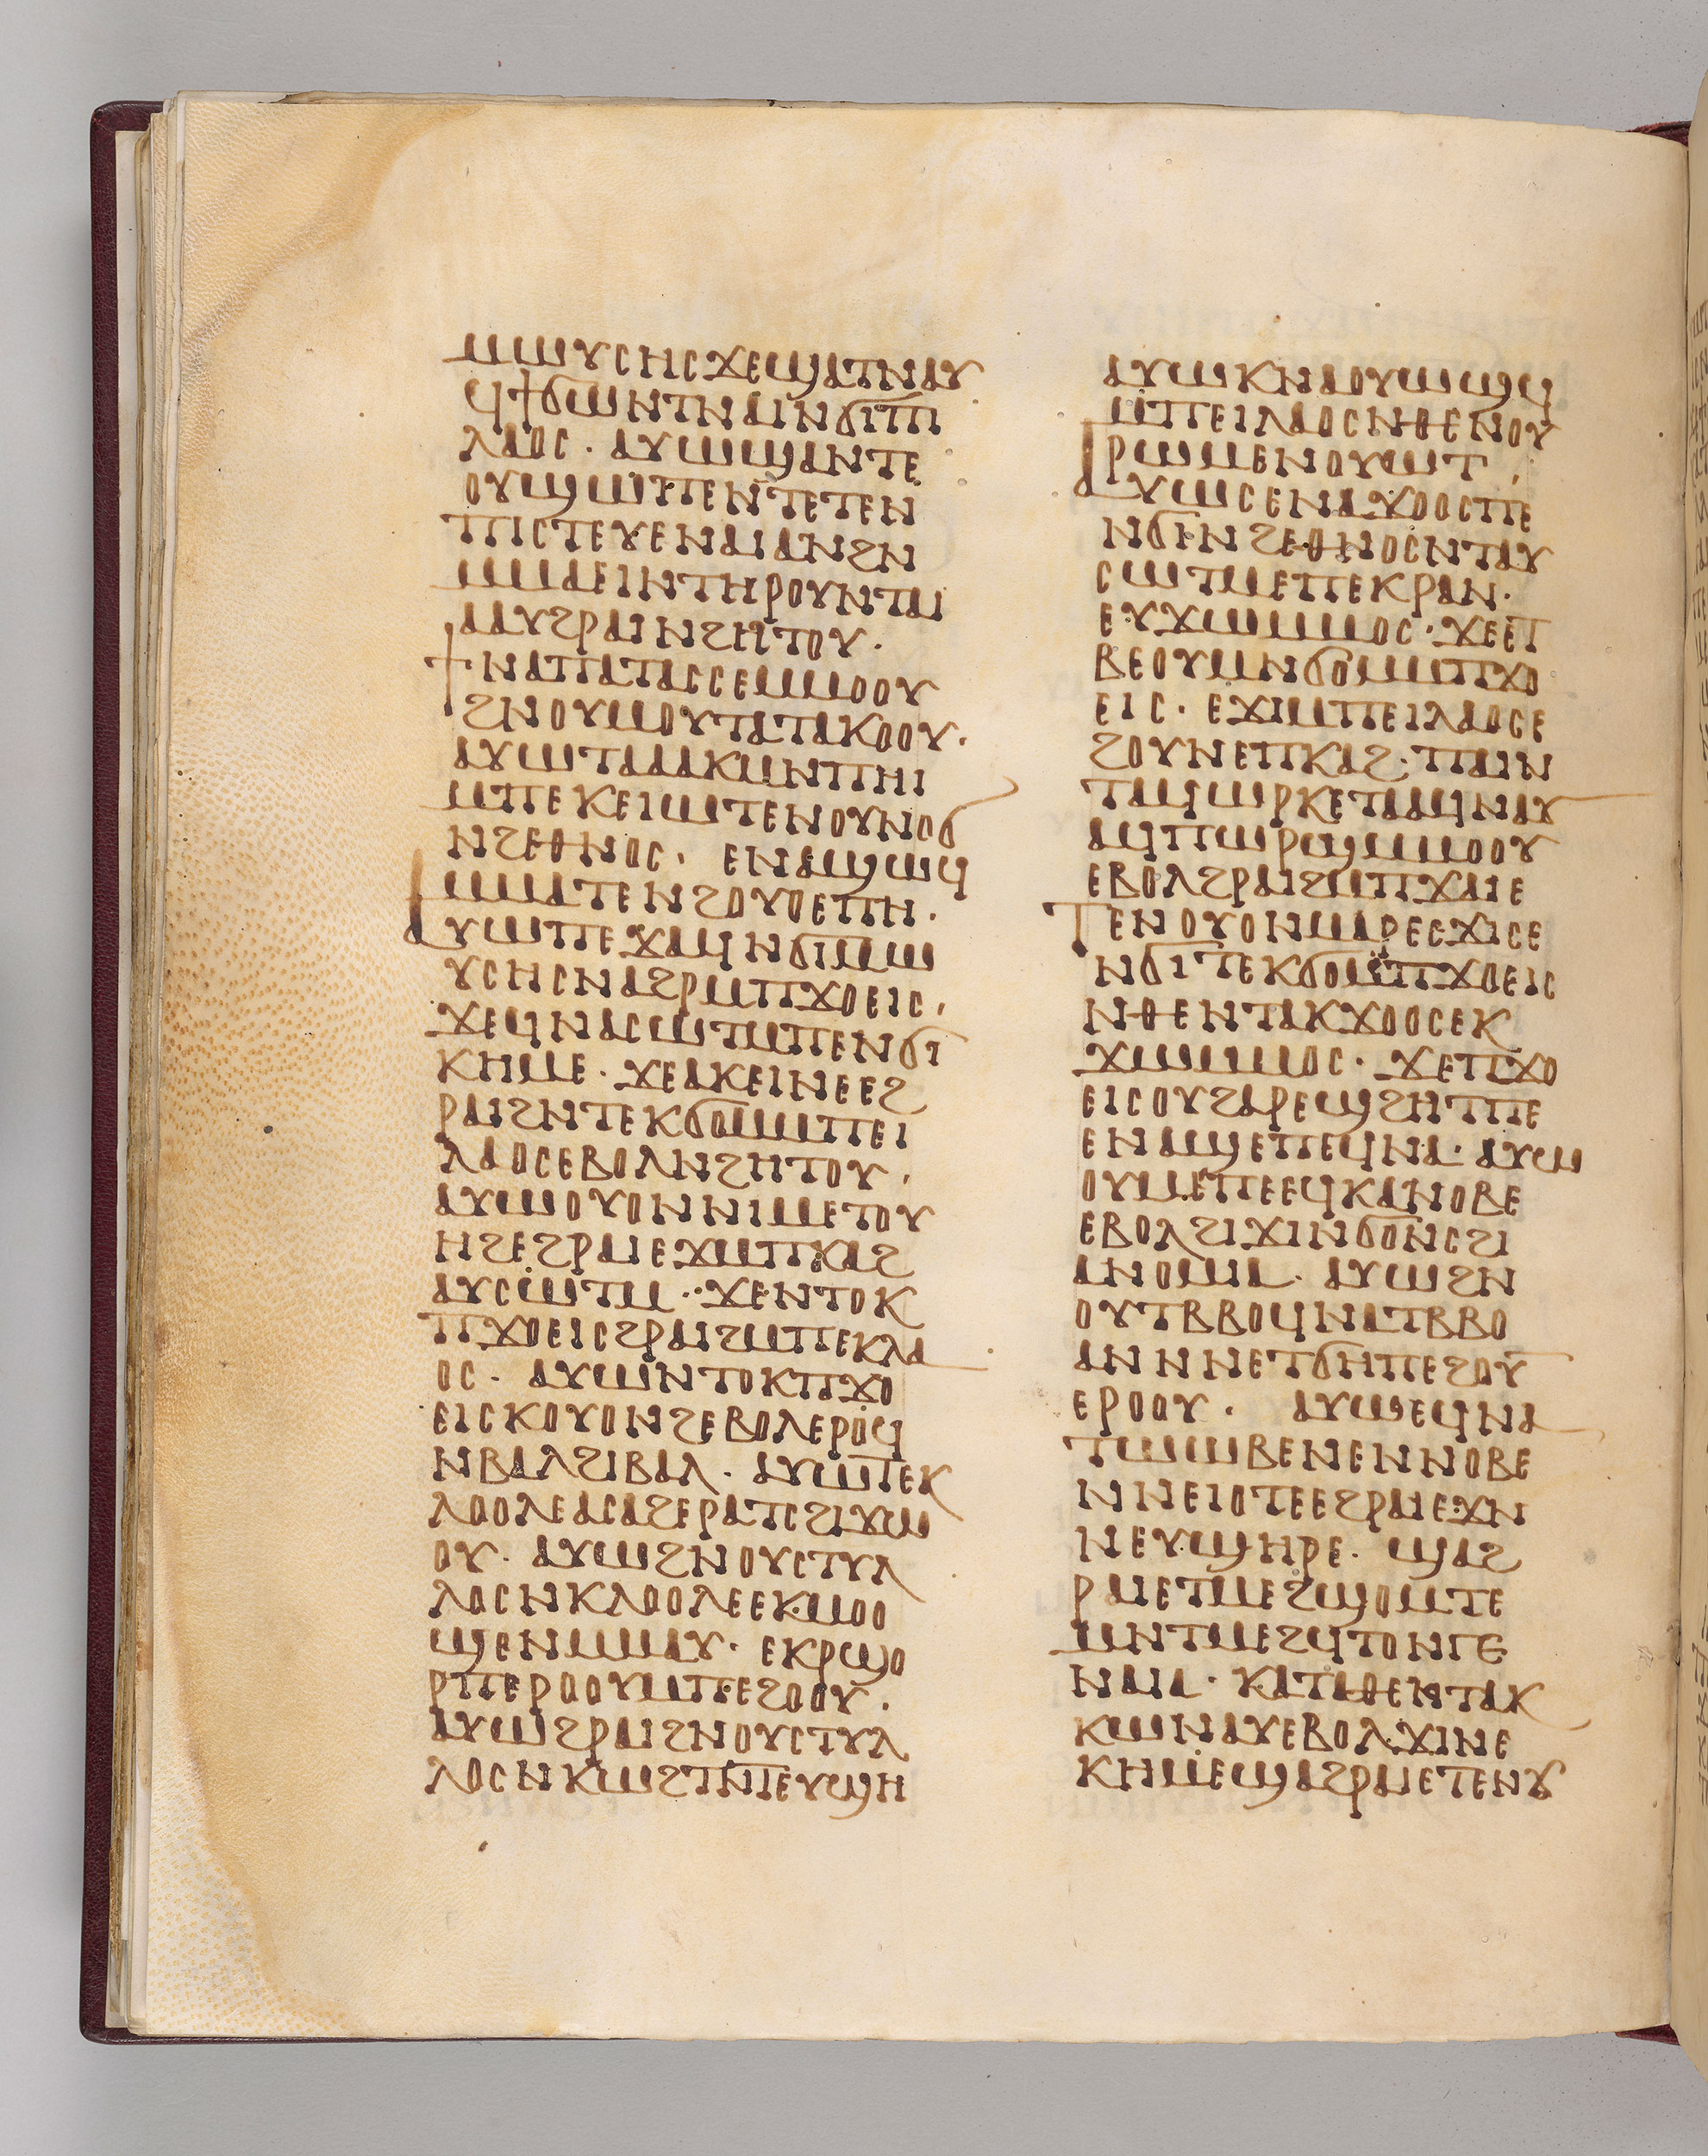 ⲙⲱⲩⲥⲏⲥϫⲉϣⲁⲧⲛⲁⲩ
ϥϯϭⲱⲛⲧⲛⲁⲓⲛϭⲓⲡⲓ
ⲗⲁⲟⲥ · ⲁⲩⲱϣⲁⲛⲧⲉ
ⲟⲩϣⲱⲡⲉⲛⲧⲉⲧⲉⲛ
ⲡⲓⲥⲧⲉⲩⲉⲛⲁⲓⲁⲛϩⲛ
ⲙⲙⲁⲉⲓⲛⲧⲏⲣⲟⲩⲛⲧⲁⲓ
ⲁⲁⲩϩⲣⲁⲓⲛϩⲏⲧⲟⲩ ·
ϯⲛⲁⲡⲁⲧⲁⲥⲥⲉⲙⲙⲟⲟⲩ
ϩⲛⲟⲩⲙⲟⲩⲧⲁⲧⲁⲕⲟⲟⲩ ·
ⲁⲩⲱⲧⲁⲁⲁⲕⲙⲛⲡⲏⲓ
ⲙⲡⲉⲕⲉⲓⲱⲧⲉⲛⲟⲩⲛⲟϭ
ⲛϩⲉⲑⲛⲟⲥ · ⲉⲛⲁϣⲱϥ
ⲙⲙⲁⲧⲉⲛϩⲟⲩⲟⲉⲡⲏ ·
ⲁⲩⲱⲡⲉϫⲁϥⲛϭⲓⲙⲱ
ⲩⲥⲏⲥⲛⲁϩⲣⲙⲡϫⲟⲉⲓⲥ ·
ϫⲉϥⲛⲁⲥⲱⲧⲙⲡⲉⲛϭⲓ
ⲕⲏⲙⲉ · ϫⲉⲁⲕⲉⲓⲛⲉⲉϩ
ⲣⲁⲓϩⲛⲧⲉⲕϭⲟⲙⲙⲡⲉⲓ
ⲗⲁⲟⲥⲉⲃⲟⲗⲛϩⲏⲧⲟⲩ ·
ⲁⲩⲱⲟⲩⲟⲛⲛⲓⲙⲉⲧⲟⲩ
ⲏϩⲉϩⲣⲁⲓⲉϫⲙⲡⲕⲁϩ
ⲁⲩⲥⲱⲧⲙ · ϫⲉⲛⲧⲟⲕ
ⲡϫⲟⲉⲓⲥϩⲣⲁⲓϩⲙⲡⲉⲕⲗⲁ
ⲟⲥ · ⲁⲩⲱⲛⲧⲟⲕⲡϫⲟ
ⲉⲓⲥⲕⲟⲩⲟⲛϩⲉⲃⲟⲗⲉⲣⲟϥ
ⲛⲃⲁⲗϩⲓⲃⲁⲗ · ⲁⲩⲱⲧⲉⲕ
ⲗⲟⲟⲗⲉⲁⲥⲁϩⲉⲣⲁⲧⲥϩⲓϫⲱ
ⲟⲩ · ⲁⲩⲱϩⲛⲟⲩⲥⲧⲩⲗ
ⲗⲟⲥⲛⲕⲗⲟⲟⲗⲉⲉⲕⲙⲟⲟ
ϣⲉⲛⲙⲙⲁⲩ · ⲉⲕⲣϣⲟ
ⲣⲡⲉⲣⲟⲟⲩⲙⲡⲉϩⲟⲟⲩ ·
ⲁⲩⲱϩⲣⲁⲓϩⲛⲟⲩⲥⲧⲩⲗ
ⲗⲟⲥⲛⲕⲱϩⲧⲛⲧⲉⲩϣⲏ
ⲁⲩⲱⲕⲛⲁⲟⲩⲱϣϥ
ⲙⲡⲉⲓⲗⲁⲟⲥⲛⲑⲉⲛⲟⲩ
ⲣⲱⲙⲉⲛⲟⲩⲱⲧ ·
ⲁⲩⲱⲥⲉⲛⲁϫⲟⲟⲥⲡⲉ
ⲛϭⲓⲛϩⲉⲑⲛⲟⲥⲛⲧⲁⲩ
ⲥⲱⲧⲙⲉⲡⲉⲕⲣⲁⲛ ·
ⲉⲩϫⲱⲙⲙⲟⲥ · ϫⲉⲉⲧ
ⲃⲉⲟⲩⲙⲛϭⲟⲙⲙⲡϫⲟ
ⲉⲓⲥ · ⲉϫⲓⲙⲡⲉⲓⲗⲁⲟⲥⲉ
ϩⲟⲩⲛⲉⲡⲕⲁϩ · ⲡⲁⲓⲛ
ⲧⲁϥⲱⲣⲕⲉⲧⲁⲁϥⲛⲁⲩ
ⲁϥⲡⲱⲣϣⲙⲙⲟⲟⲩ
ⲉⲃⲟⲗϩⲣⲁⲓϩⲙⲡϫⲁⲓⲉ
ⲧⲉⲛⲟⲩⲟⲛⲙⲁⲣⲉⲥϫⲓⲥⲉ
ⲛϭⲓⲧⲉⲕϭⲟⲙⲡϫⲟⲉⲓⲥ
ⲛⲑⲉⲛⲧⲁⲕϫⲟⲟⲥⲉⲕ
ϫⲱⲙⲙⲟⲥ · ϫⲉⲡϫⲟ
ⲉⲓⲥⲟⲩϩⲁⲣⲉϣϩⲏⲧⲡⲉ
ⲉⲛⲁϣⲉⲡⲉϥⲛⲁ · ⲁⲩⲱ
ⲟⲩⲙⲉⲡⲉⲉϥⲕⲁⲛⲟⲃⲉ
ⲉⲃⲟⲗϩⲓϫⲓⲛϭⲟⲛⲥϩⲓ
ⲁⲛⲟⲙⲓⲁ · ⲁⲩⲱϩⲛ
ⲟⲩⲧⲃⲃⲟϥⲛⲁⲧⲃⲃⲟ
ⲁⲛⲛⲛⲉⲧϭⲏⲡⲉϩⲟⲩ
ⲉⲣⲟⲟⲩ · ⲁⲩⲱⲉϥⲛⲁ
ⲧⲱⲱⲃⲉⲛⲉⲛⲛⲟⲃⲉ
ⲛⲛⲉⲓⲟⲧⲉⲉϩⲣⲁⲓⲉϫⲛ
ⲛⲉⲩϣⲏⲣⲉ · ϣⲁϩ
ⲣⲁⲓⲉⲧⲙⲉϩϣⲟⲙⲧⲉ
ⲙⲛⲧⲙⲉϩϥⲧⲟⲛⲅⲉ
ⲛⲉⲁ · ⲕⲁⲧⲁⲑⲉⲛⲧⲁⲕ
ⲕⲱⲛⲁⲩⲉⲃⲟⲗϫⲓⲛⲉ
ⲕⲏⲙⲉϣⲁϩⲣⲁⲓⲉⲧⲉⲛⲟⲩ